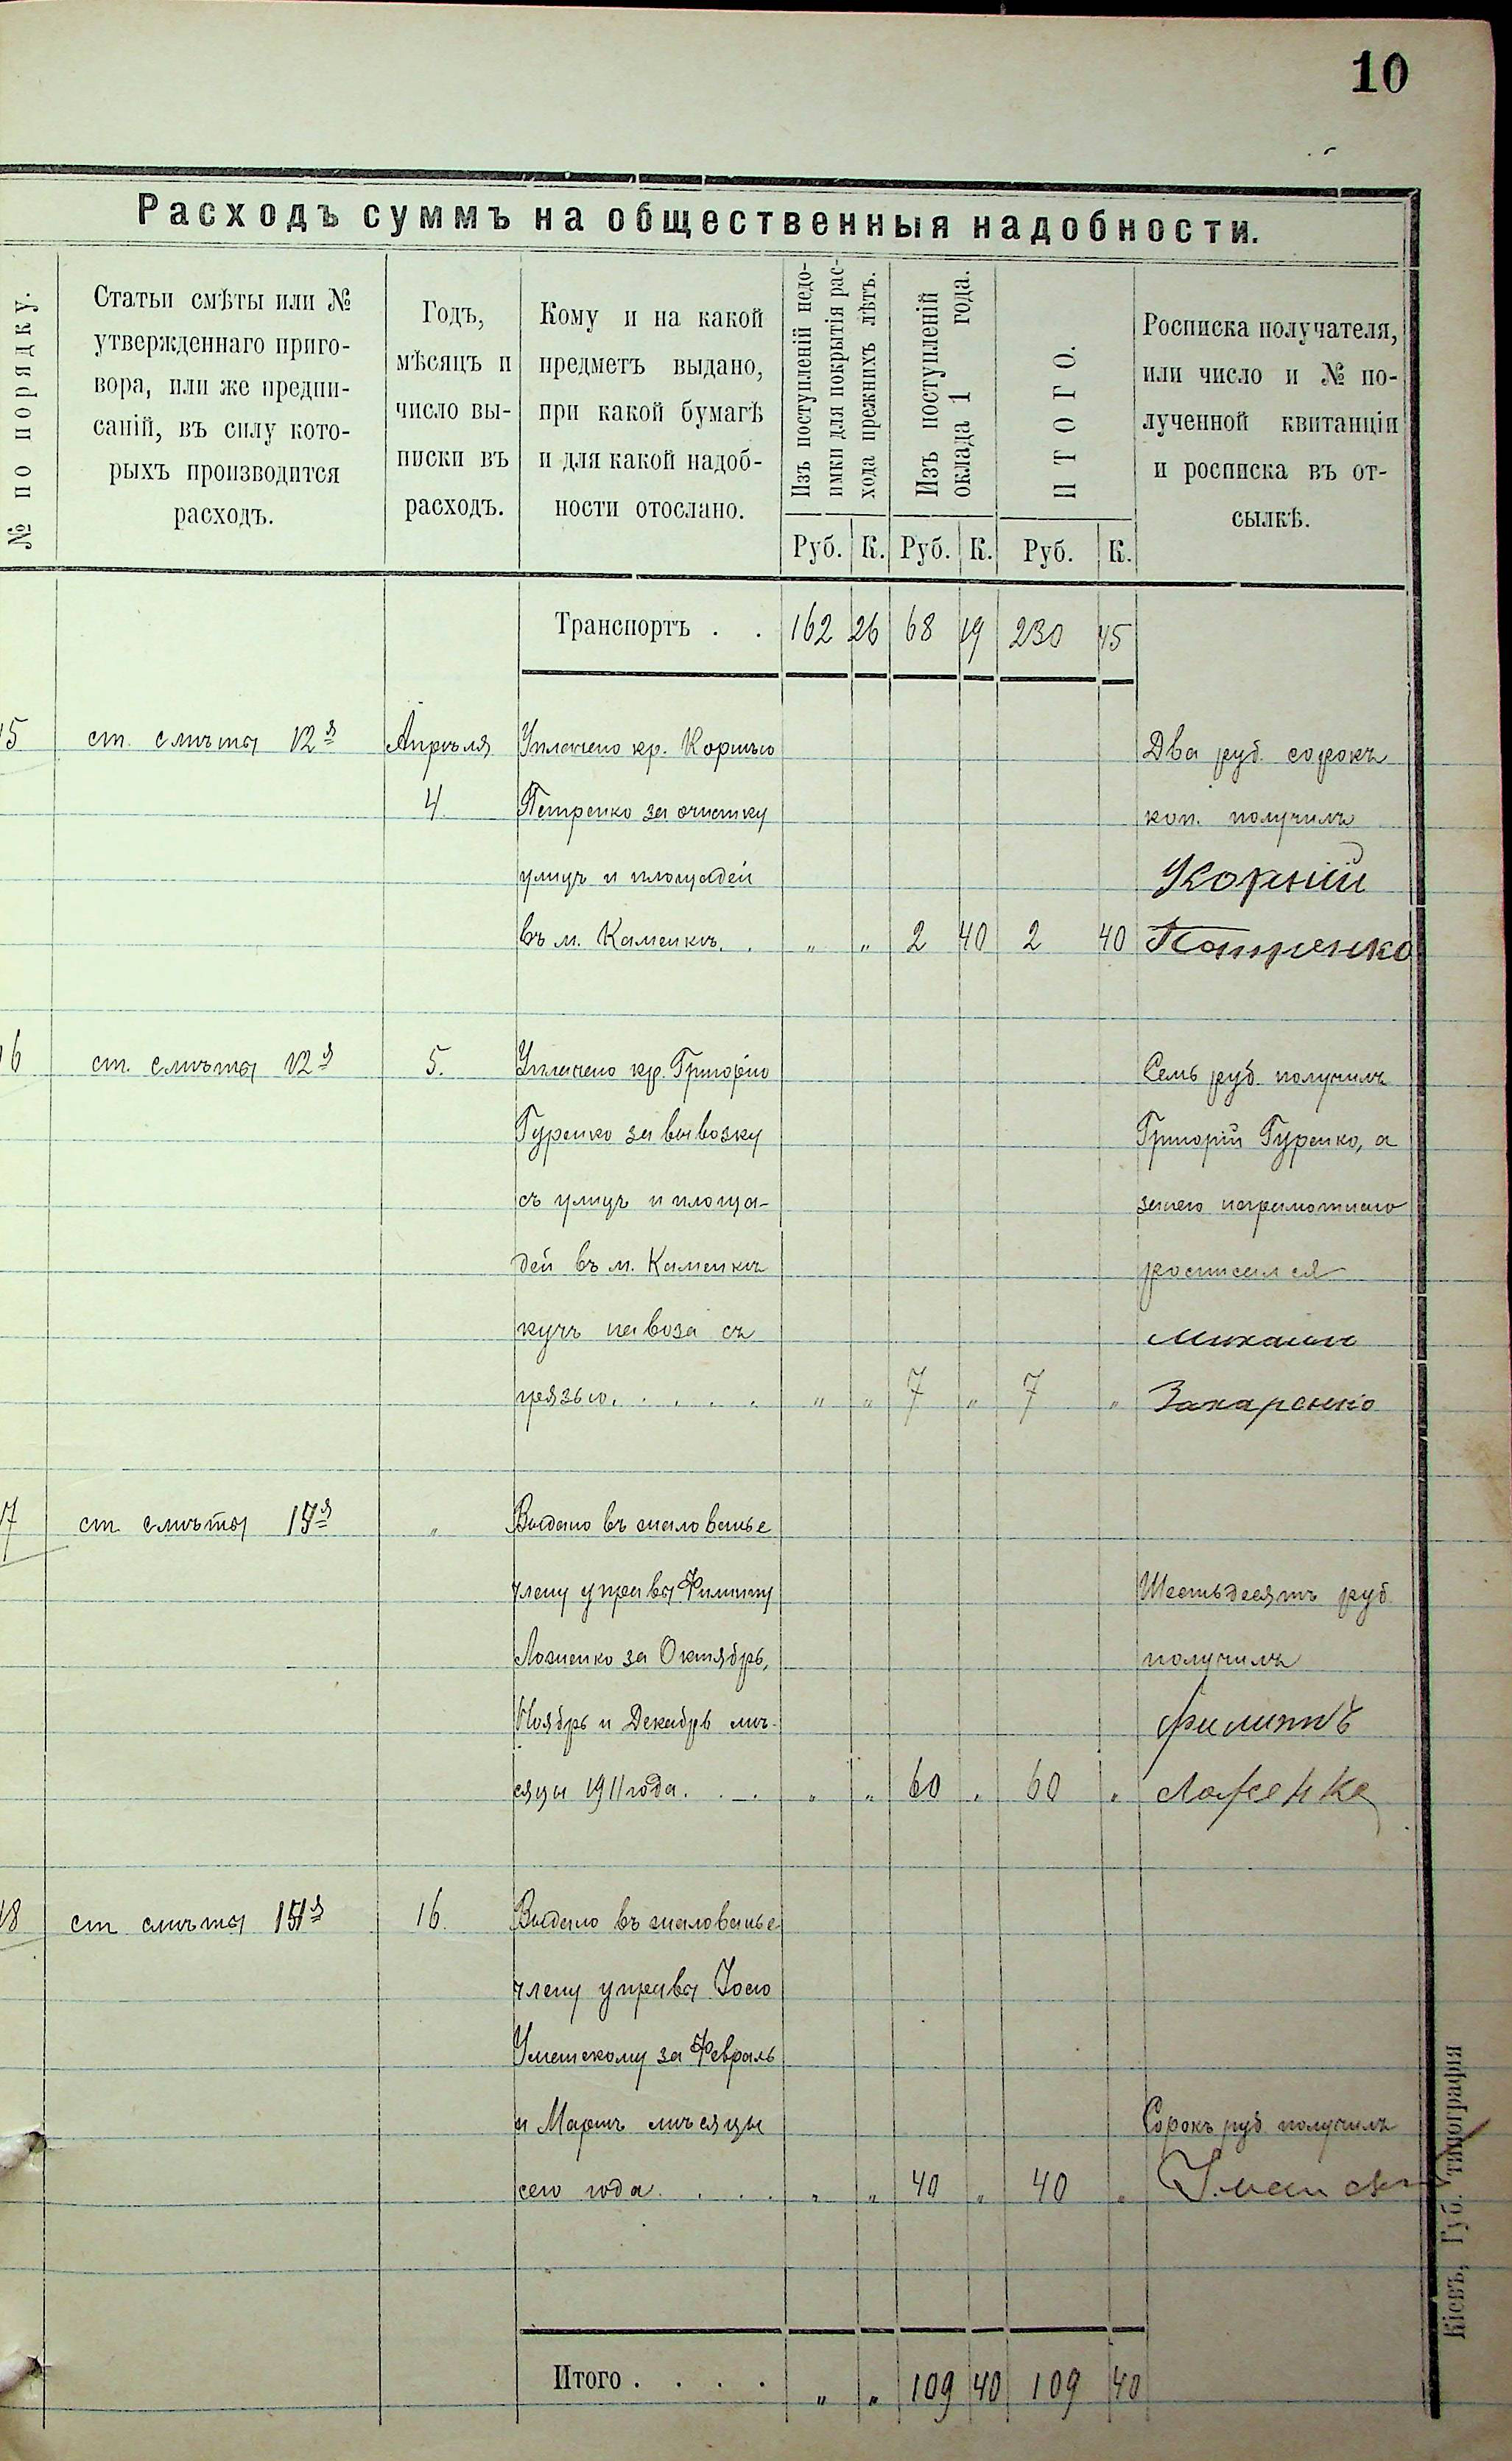 10
Расходъ суммъ на общественныя надобности.
№ по порядку.
Статьи смѣты или №
утвержденнаго приго-
вора, или же предпи-
саній, въ силу кото-
рыхъ производится
расходъ.
Годъ,
мѣсяцъ и
число вы-
писки въ
расходъ.
Кому и на какой
предметъ выдано,
при какой бумагѣ
и для какой надоб-
ности отослано.
Изъ поступленій недо-
имки для покрытія рас-
хода прежнихъ лѣтъ.
Изъ поступленій
оклада 1 года.
ИТОГО.
Росписка получателя,
или число и № по-
лученной квитанціи
и росписка въ от-
сылкѣ.
Руб. К. Руб. К. Руб. К.
Транспортъ . . 162 26 68 19 230 45
15 ст. смѣты 12я Апрѣля Уплачено кр. Корнѣю Два руб. сорокъ
4 Петренко за очистку коп. получилъ
улицъ и площадей Корній
въ м. Каменкѣ. . " " 2 40 2 40 Петренко
16 ст. смѣты 12я 5. Уплачено кр. Григорію Семь руб. получилъ
Гуренко за вывозку Григорій Гуренко, а
съ улицъ и площа- занего неграмотнаго
дей въ м. Каменкѣ росписался
кучъ навоза съ Михаилъ
грязью. . . . . " " 7 " 7 " Захаренко
17 ст. смѣты " Выдано въ жалованье
члену управы Филиппу Шестьдесятъ руб.
Ложенко за Октябрь, получилъ
Ноябрь и Декабрь мѣ- Филиппъ
сяцы 1911 года. . . . " " 60 " 60 " Ложенко
18 ст смѣты 16. Выдано въ жалованье
члену управы
Уманскому за Февраль
и Мартъ мѣсяцы Сорокъ руб. получилъ
сего года. . . . " " 40 " 40 " Уманскій
Итого . . . . " " 109 40 109 40
Кіевъ, Губ. типографія